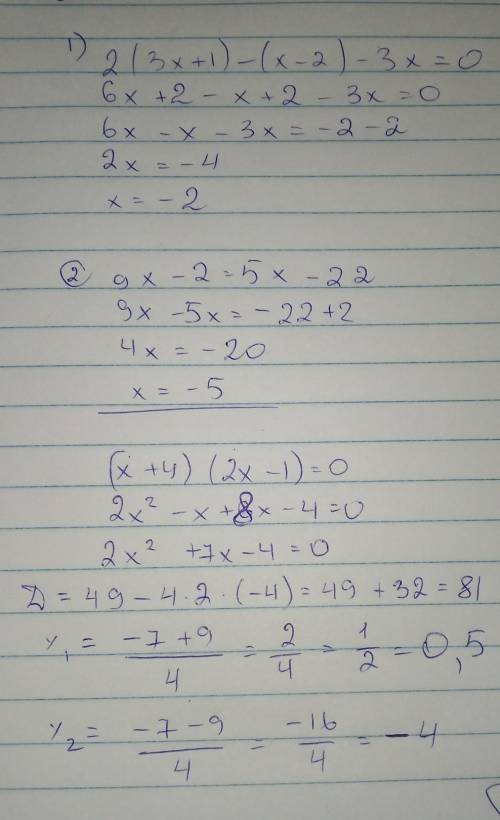 1) 2(3x+1)-(x-2)-3x=0
6x+2-x+2-3x=0
6x-x-3x=-2-2
2x=-4
x=-2
② 9x-2=5x-22
9x-5x=-22+2
4x=-20
x=-5
(x+4)(2x-1)=0
2x²-x+8x-4=0
2x²+7x-4=0
D=49-4·2·(-4)=49+32=81
x₁=(-7+9)/4=2/4=1/2=0,5
x₂=(-7-9)/4=-16/4=-4